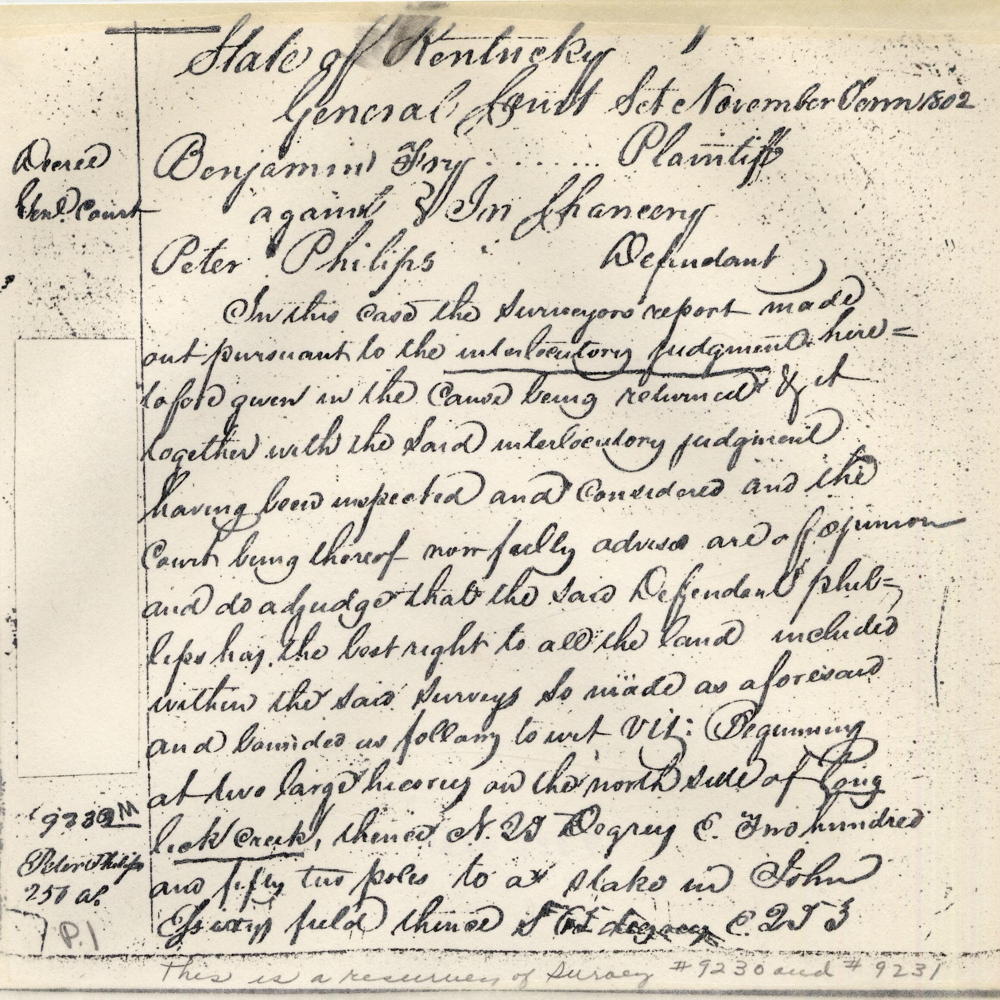 State of Kentucky
General Court Sct November Term 1802
Decree
Genl. Court
Benjamin Fry ........ Plaintiff
against } In Chancery
Peter Philips Defendant
In this case the Surveyors report made
out pursuant to the interlocutory judgment here=
tofore given in the Cause being returned & it
together with the said interlocutory judgment
having been inspected and Considered and the
Court being thereof now fully advised are of opinion
and do adjudge that the said Defendant phil=
lips has the best right to all the land included
within the said Surveys so made as aforesaid
and bounded as follows to wit Viz: Beginning
at two large hicorys on the north side of Long
lick Creek, thence N. 25 Degrees E. Two hundred
and fifty two poles to a stake in John
field thence S degrees E. 253
9232 M
Peter Philips
250 a.
P.1
This is a resurvey of Survey #9230 and #9231